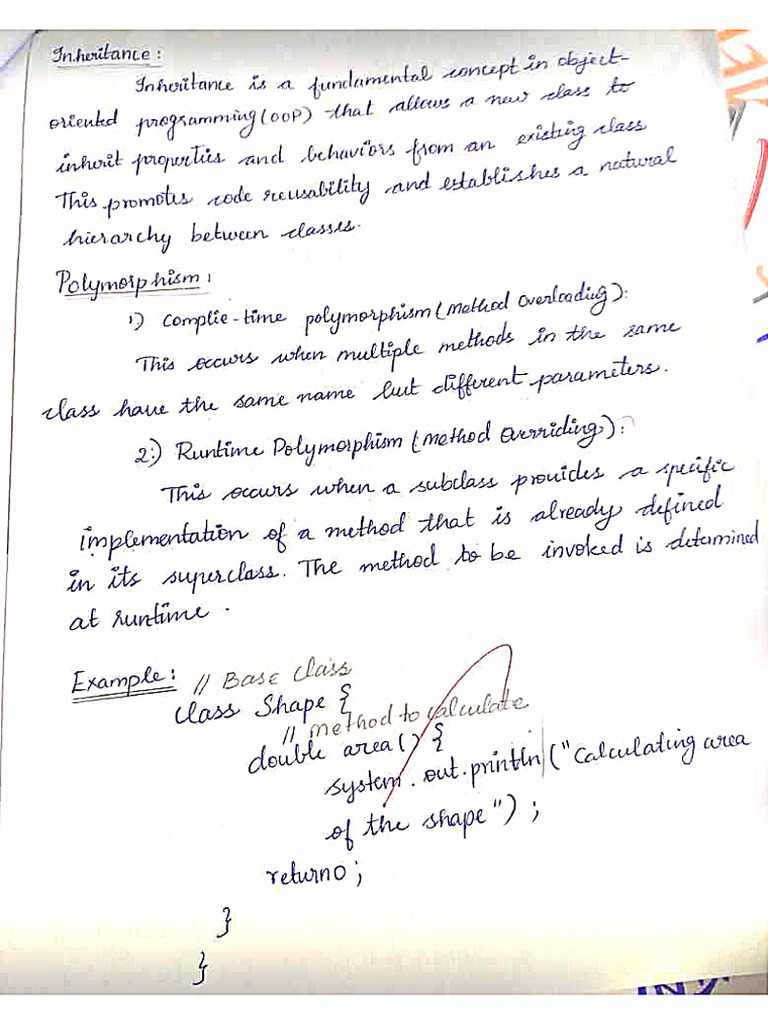 Inheritance:
Inheritance is a fundamental concept in object-
oriented programming(OOP) that allows a new class to
inherit properties and behaviors from an existing class
This promotes code reusability and establishes a natural
hierarchy between classes.
Polymorphism:
1) Complie-time polymorphism (Method Overloading):
This occurs when multiple methods in the same
class have the same name but different parameters.
2:) Runtime Polymorphism (Method Overriding):
This occurs when a subclass provides a specific
implementation of a method that is already defined
in its superclass. The method to be invoked is determined
at runtime.
Example: // Base class
class Shape {
// method to calculate
double area() {
system.out.println("Calculating area
of the shape");
return0;
}
}